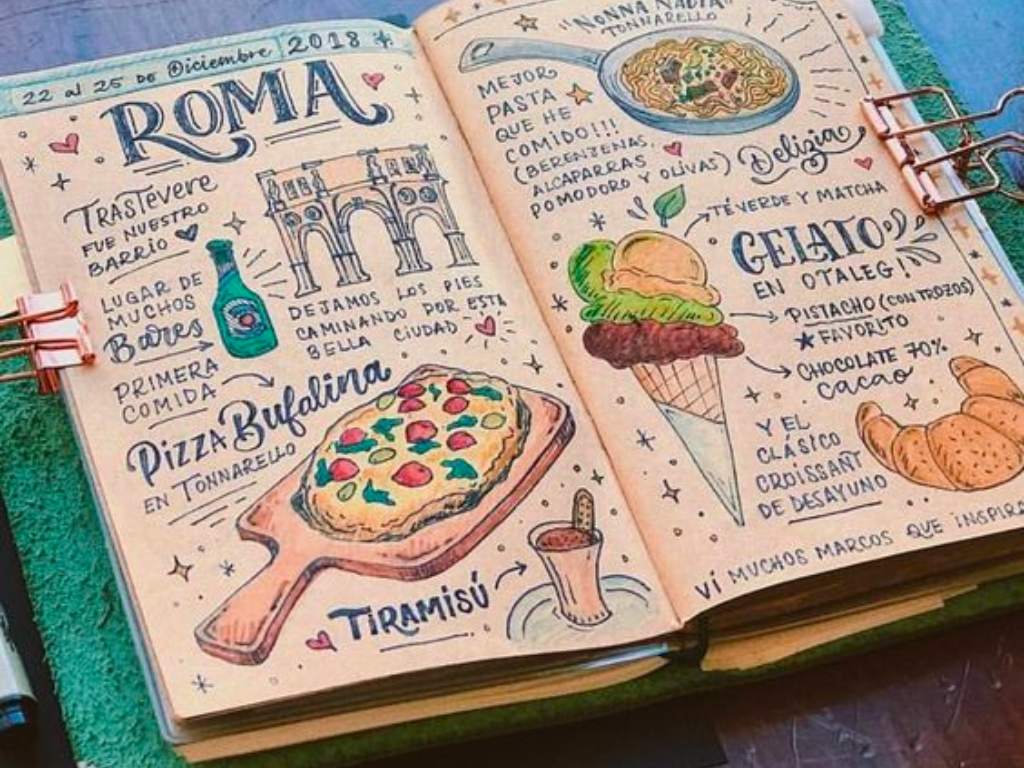 22 al 25 de Diciembre 2018
ROMA
TRASTEVERE
FUE NUESTRO
BARRIO
LUGAR DE
MUCHOS
Bares
DEJAMOS LOS PIES
CAMINANDO POR ESTA
BELLA CIUDAD
PRIMERA
COMIDA
PIZZA Bufalina
EN TONNARELLO
TIRAMISÚ
"NONNA NADIA"
TONNARELLO
MEJOR
PASTA
QUE HE
COMIDO!!!
(BERENJENAS,
ALCAPARRAS,
POMODORO Y OLIVAS)
Delizia
TÉ VERDE Y MATCHA
GELATO
EN OTALEG!
PISTACHO (CON TROZOS)
FAVORITO
CHOCOLATE 70%
cacao
Y EL
CLÁSICO
CROISSANT
DE DESAYUNO
VÍ MUCHOS MARCOS QUE INSPIRA